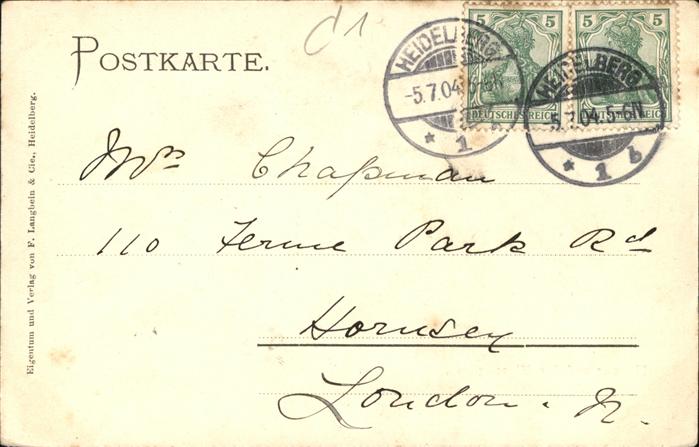 C1
POSTKARTE.
HEIDELBERG
-5.7.04.5-6N
* 1 b
5 5
DEUTSCHES REICH
HEIDELBERG
5.7.04.5-6N
* 1 b
5 5
DEUTSCHES REICH
Mrs Chapman
110 Ferme Park Rd
Hornsey
London. N.
Eigentum und Verlag von F. Langbein & Cie., Heidelberg.